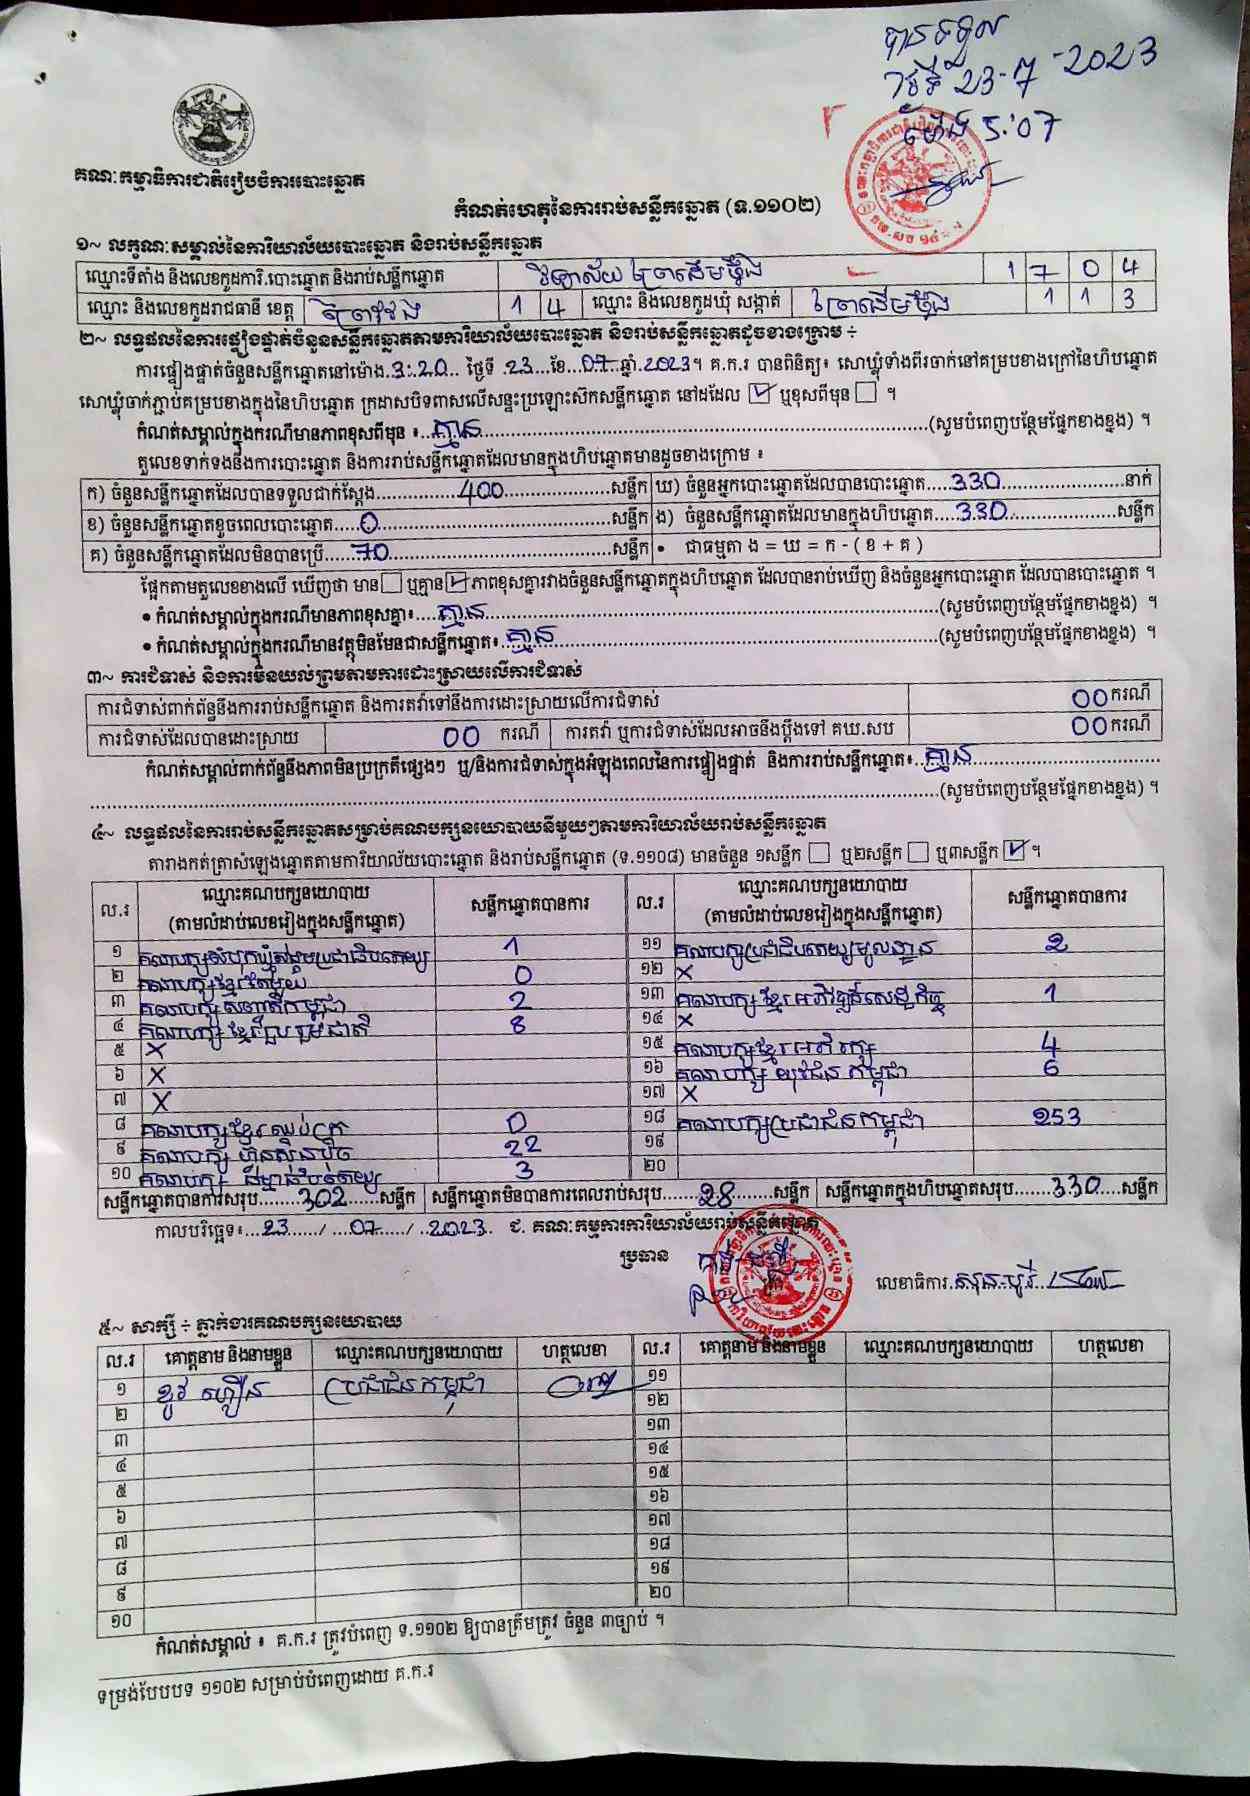 បានទទួល
ថ្ងៃទី 23-7-2023
ម៉ោង 5:07
គណៈកម្មាធិការជាតិរៀបចំការបោះឆ្នោត
កំណត់ហេតុនៃការរាប់សន្លឹកឆ្នោត (ទ.១១០២)
១~ លក្ខណៈសម្គាល់នៃការិយាល័យបោះឆ្នោត និងរាប់សន្លឹកឆ្នោត
ឈ្មោះទីតាំង និងលេខកូដការិ.បោះឆ្នោត និងរាប់សន្លឹកឆ្នោត វិទ្យាល័យ ព្រៃដើមថ្នឹង 1 7 0 4
ឈ្មោះ និងលេខកូដរាជធានី ខេត្ត ព្រៃវែង 1 4 ឈ្មោះ និងលេខកូដឃុំ សង្កាត់ ព្រៃដើមថ្នឹង 1 1 3
២~ លទ្ធផលនៃការផ្ទៀងផ្ទាត់ចំនួនសន្លឹកឆ្នោតតាមការិយាល័យបោះឆ្នោត និងរាប់សន្លឹកឆ្នោតដូចខាងក្រោម ÷
ការផ្ទៀងផ្ទាត់ចំនួនសន្លឹកឆ្នោតនៅម៉ោង..3:20.. ថ្ងៃទី .23...ខែ...07...ឆ្នាំ.2023។ គ.ក.រ បានពិនិត្យ៖ សោឃ្លុំទាំងពីរចាក់នៅគម្របខាងក្រៅនៃហិបឆ្នោត
សោឃ្លុំចាក់ភ្ជាប់គម្របខាងក្នុងនៃហិបឆ្នោត ក្រដាសបិទពាសលើសន្ទះប្រឡោះស៊កសន្លឹកឆ្នោត នៅដដែល ☑ ឬខុសពីមុន ☐ ។
កំណត់សម្គាល់ក្នុងករណីមានភាពខុសពីមុន ៖...គ្មាន...(សូមបំពេញបន្ថែមផ្នែកខាងខ្នង) ។
តួលេខទាក់ទងនឹងការបោះឆ្នោត និងការរាប់សន្លឹកឆ្នោតដែលមានក្នុងហិបឆ្នោតមានដូចខាងក្រោម ៖
ក) ចំនួនសន្លឹកឆ្នោតដែលបានទទួលជាក់ស្តែង...400...សន្លឹក ឃ) ចំនួនអ្នកបោះឆ្នោតដែលបានបោះឆ្នោត...330...នាក់
ខ) ចំនួនសន្លឹកឆ្នោតខូចពេលបោះឆ្នោត...0...សន្លឹក ង) ចំនួនសន្លឹកឆ្នោតដែលមានក្នុងហិបឆ្នោត...330...សន្លឹក
គ) ចំនួនសន្លឹកឆ្នោតដែលមិនបានប្រើ...70...សន្លឹក • ជាធម្មតា ង = ឃ = ក - ( ខ + គ )
ផ្អែកតាមតួលេខខាងលើ ឃើញថា មាន ☐ ឬគ្មាន ☑ ភាពខុសគ្នារវាងចំនួនសន្លឹកឆ្នោតក្នុងហិបឆ្នោត ដែលបានរាប់ឃើញ និងចំនួនអ្នកបោះឆ្នោត ដែលបានបោះឆ្នោត ។
• កំណត់សម្គាល់ក្នុងករណីមានភាពខុសគ្នា៖...គ្មាន...(សូមបំពេញបន្ថែមផ្នែកខាងខ្នង) ។
• កំណត់សម្គាល់ក្នុងករណីមានវត្ថុមិនមែនជាសន្លឹកឆ្នោត៖...គ្មាន...(សូមបំពេញបន្ថែមផ្នែកខាងខ្នង) ។
៣~ ការជំទាស់ និងការមិនយល់ព្រមតាមការដោះស្រាយលើការជំទាស់
ការជំទាស់ពាក់ព័ន្ធនឹងការរាប់សន្លឹកឆ្នោត និងការតវ៉ាទៅនឹងការដោះស្រាយលើការជំទាស់ 00 ករណី
ការជំទាស់ដែលបានដោះស្រាយ 00 ករណី ការតវ៉ា ឬការជំទាស់ដែលអាចនឹងប្តឹងទៅ គឃ.សប 00 ករណី
កំណត់សម្គាល់ពាក់ព័ន្ធនឹងភាពមិនប្រក្រតីផ្សេងៗ ឬ/និងការជំទាស់ក្នុងអំឡុងពេលនៃការផ្ទៀងផ្ទាត់ និងការរាប់សន្លឹកឆ្នោត៖...គ្មាន...
...(សូមបំពេញបន្ថែមផ្នែកខាងខ្នង) ។
៤~ លទ្ធផលនៃការរាប់សន្លឹកឆ្នោតសម្រាប់គណបក្សនយោបាយនីមួយៗតាមការិយាល័យរាប់សន្លឹកឆ្នោត
តារាងកត់ត្រាសំឡេងឆ្នោតតាមការិយាល័យបោះឆ្នោត និងរាប់សន្លឹកឆ្នោត (ទ.១១០៨) មានចំនួន ១សន្លឹក ☐ ឬ២សន្លឹក ☐ ឬ៣សន្លឹក ☑ ។
ល.រ ឈ្មោះគណបក្សនយោបាយ (តាមលំដាប់លេខរៀងក្នុងសន្លឹកឆ្នោត) សន្លឹកឆ្នោតបានការ ល.រ ឈ្មោះគណបក្សនយោបាយ (តាមលំដាប់លេខរៀងក្នុងសន្លឹកឆ្នោត) សន្លឹកឆ្នោតបានការ
១ គណបក្សសំបុកឃ្មុំសង្គមប្រជាធិបតេយ្យ 1 ១១ គណបក្សប្រជាធិបតេយ្យមូលដ្ឋាន 2
២ គណបក្សខ្មែរតែមួយ 0 ១២ X
៣ គណបក្សសញ្ជាតិកម្ពុជា 2 ១៣ គណបក្ស ខ្មែរអភិវឌ្ឍន៍សេដ្ឋកិច្ច 1
៤ គណបក្ស ខ្មែររួបរួមជាតិ 8 ១៤ X
៥ X ១៥ គណបក្សខ្មែរអភិរក្ស 4
៦ X ១៦ គណបក្ស យុវជន កម្ពុជា 6
៧ X ១៧ X
៨ គណបក្សខ្មែរឈប់ក្រ 0 ១៨ គណបក្សប្រជាជនកម្ពុជា 253
៩ គណបក្ស ហ្វ៊ុនស៊ិនប៉ិច 22 ១៩
១០ គណបក្ស ឆន្ទៈខ្មែរ 3 ២០
សន្លឹកឆ្នោតបានការសរុប...302...សន្លឹក សន្លឹកឆ្នោតមិនបានការពេលរាប់សរុប...28...សន្លឹក សន្លឹកឆ្នោតក្នុងហិបឆ្នោតសរុប...330...សន្លឹក
កាលបរិច្ឆេទ៖...23.../...07.../...2023. ជ. គណៈកម្មការការិយាល័យរាប់សន្លឹកឆ្នោត
ប្រធាន
លេខាធិការ
៥~ សាក្សី ÷ ភ្នាក់ងារគណបក្សនយោបាយ
ល.រ គោត្តនាម និងនាមខ្លួន ឈ្មោះគណបក្សនយោបាយ ហត្ថលេខា ល.រ គោត្តនាម និងនាមខ្លួន ឈ្មោះគណបក្សនយោបាយ ហត្ថលេខា
១ ខូវ ហឿន ប្រជាជនកម្ពុជា ១១
២ ១២
៣ ១៣
៤ ១៤
៥ ១៥
៦ ១៦
៧ ១៧
៨ ១៨
៩ ១៩
១០ ២០
កំណត់សម្គាល់ ៖ គ.ក.រ ត្រូវបំពេញ ទ.១១០២ ឱ្យបានត្រឹមត្រូវ ចំនួន ៣ច្បាប់ ។
ទម្រង់បែបបទ ១១០២ សម្រាប់បំពេញដោយ គ.ក.រ